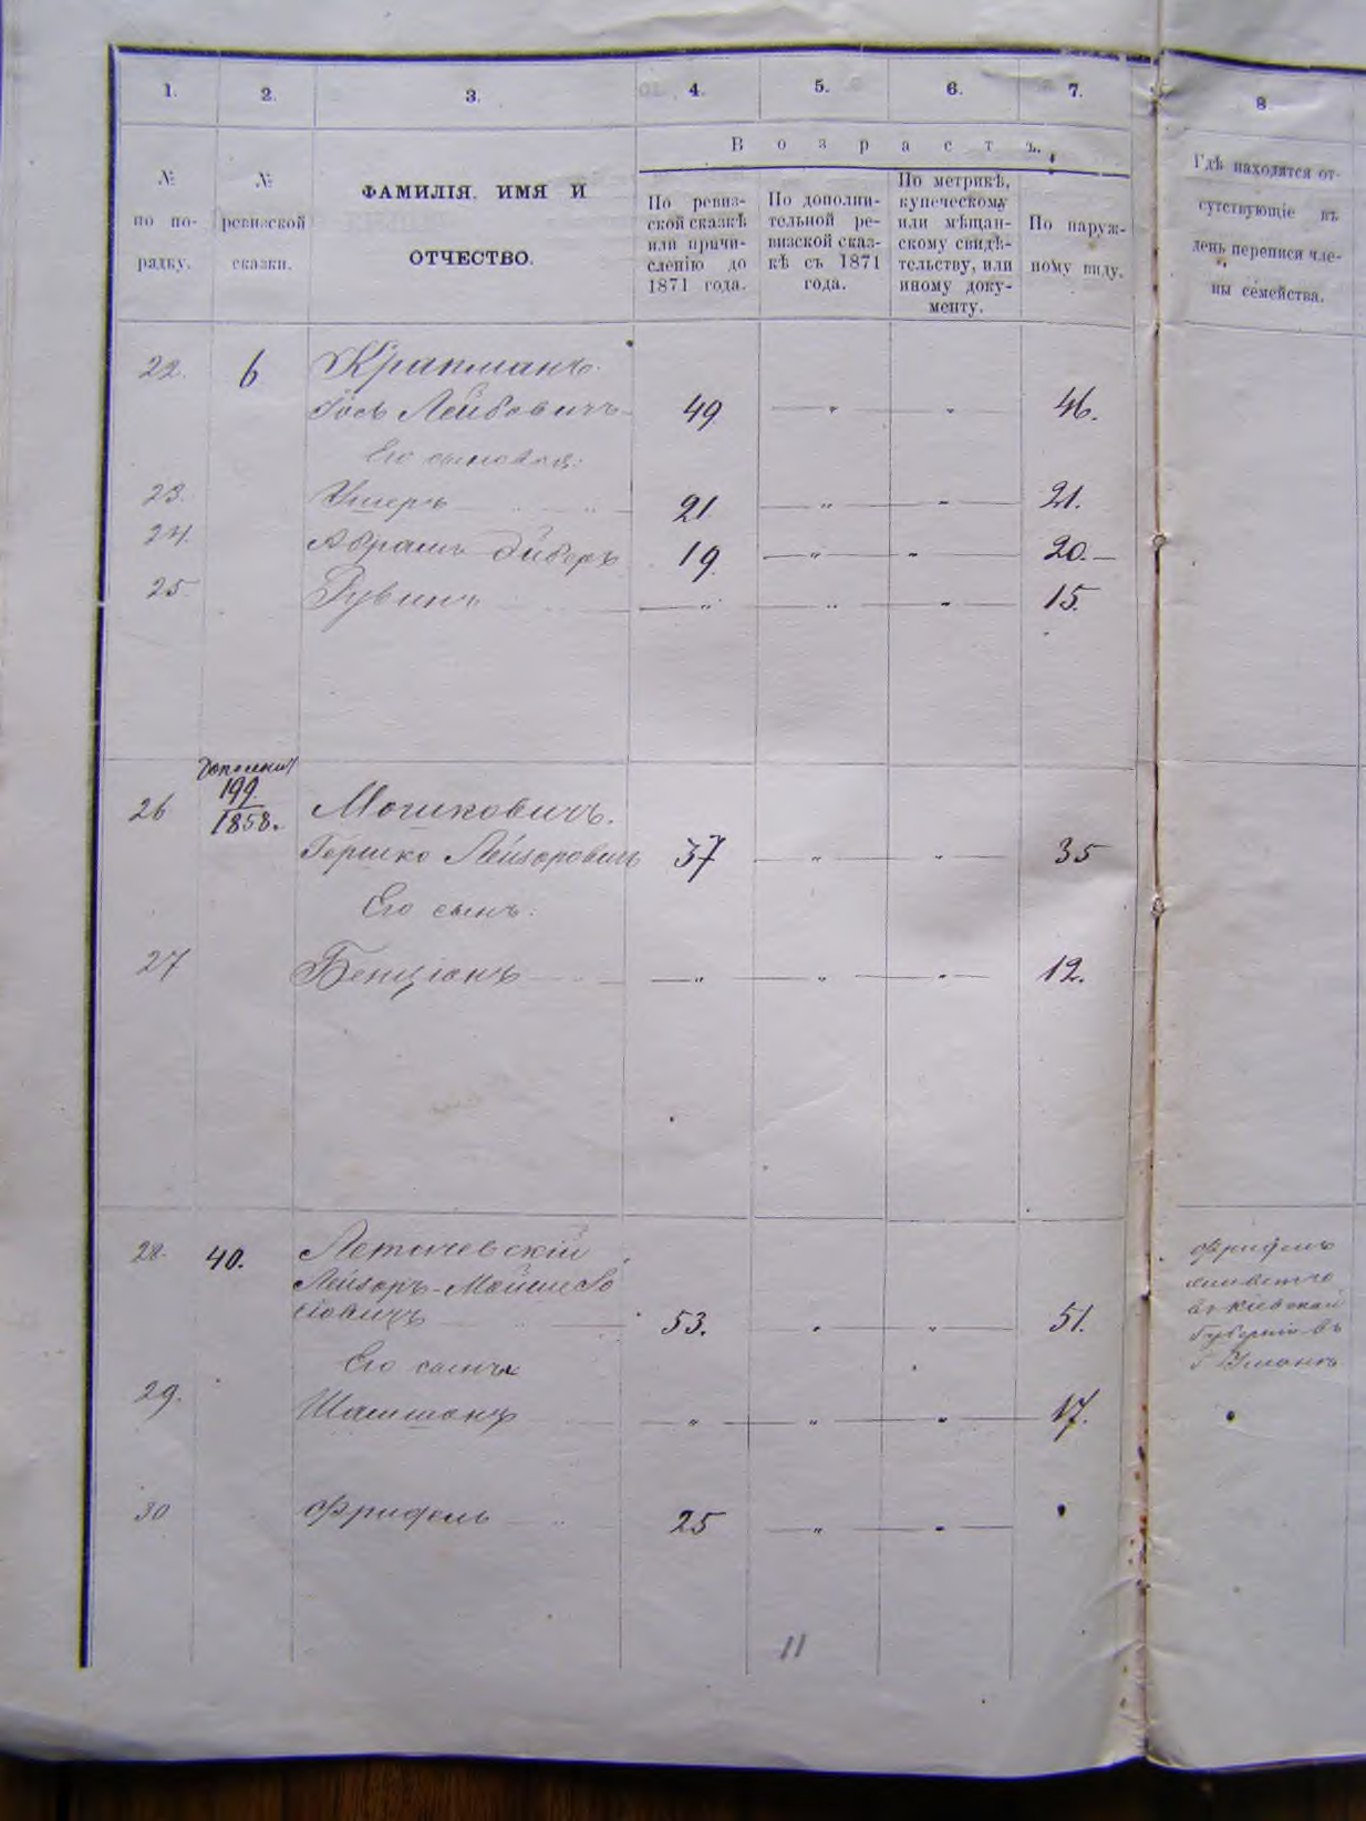 1. 2. 3. 4. 5. 6. 7. 8
Возрастъ.
№ по по-рядку.
№ ревизской сказки.
ФАМИЛІЯ. ИМЯ И
ОТЧЕСТВО.
По ревиз-
ской сказкѣ
или причи-
сленію до
1871 года.
По дополни-
тельной ре-
визской сказ-
кѣ съ 1871
года.
По метрикѣ,
купеческому
или мѣщан-
скому свидѣ-
тельству, или
иному доку-
менту.
По наруж-
ному виду.
Гдѣ находятся от-
сутствующіе въ
день переписи чле-
ны семейства.
22. 6 Крапманъ
Іось Лейбовичъ 49 " " 46.
Его сыновья:
23. Ушеръ 21 " " 21.
24. Абрамъ 19 " " 20.
25 Рувинъ " " " 15.
26 199/1858. Мошковичъ.
Гершко Лейзоровичъ 37 " " 35
Его сынъ:
27 Бенціонъ " " " 12.
28. 40. Летичевскій
Лейзоръ-Мойше Іо
сіовичъ 53. " " 51.
Его сыновья
29. Шашмонъ " " " 17.
30 Фридель 25 " "
Фридель
въ Кіевской
губерніи въ
г Умань
11